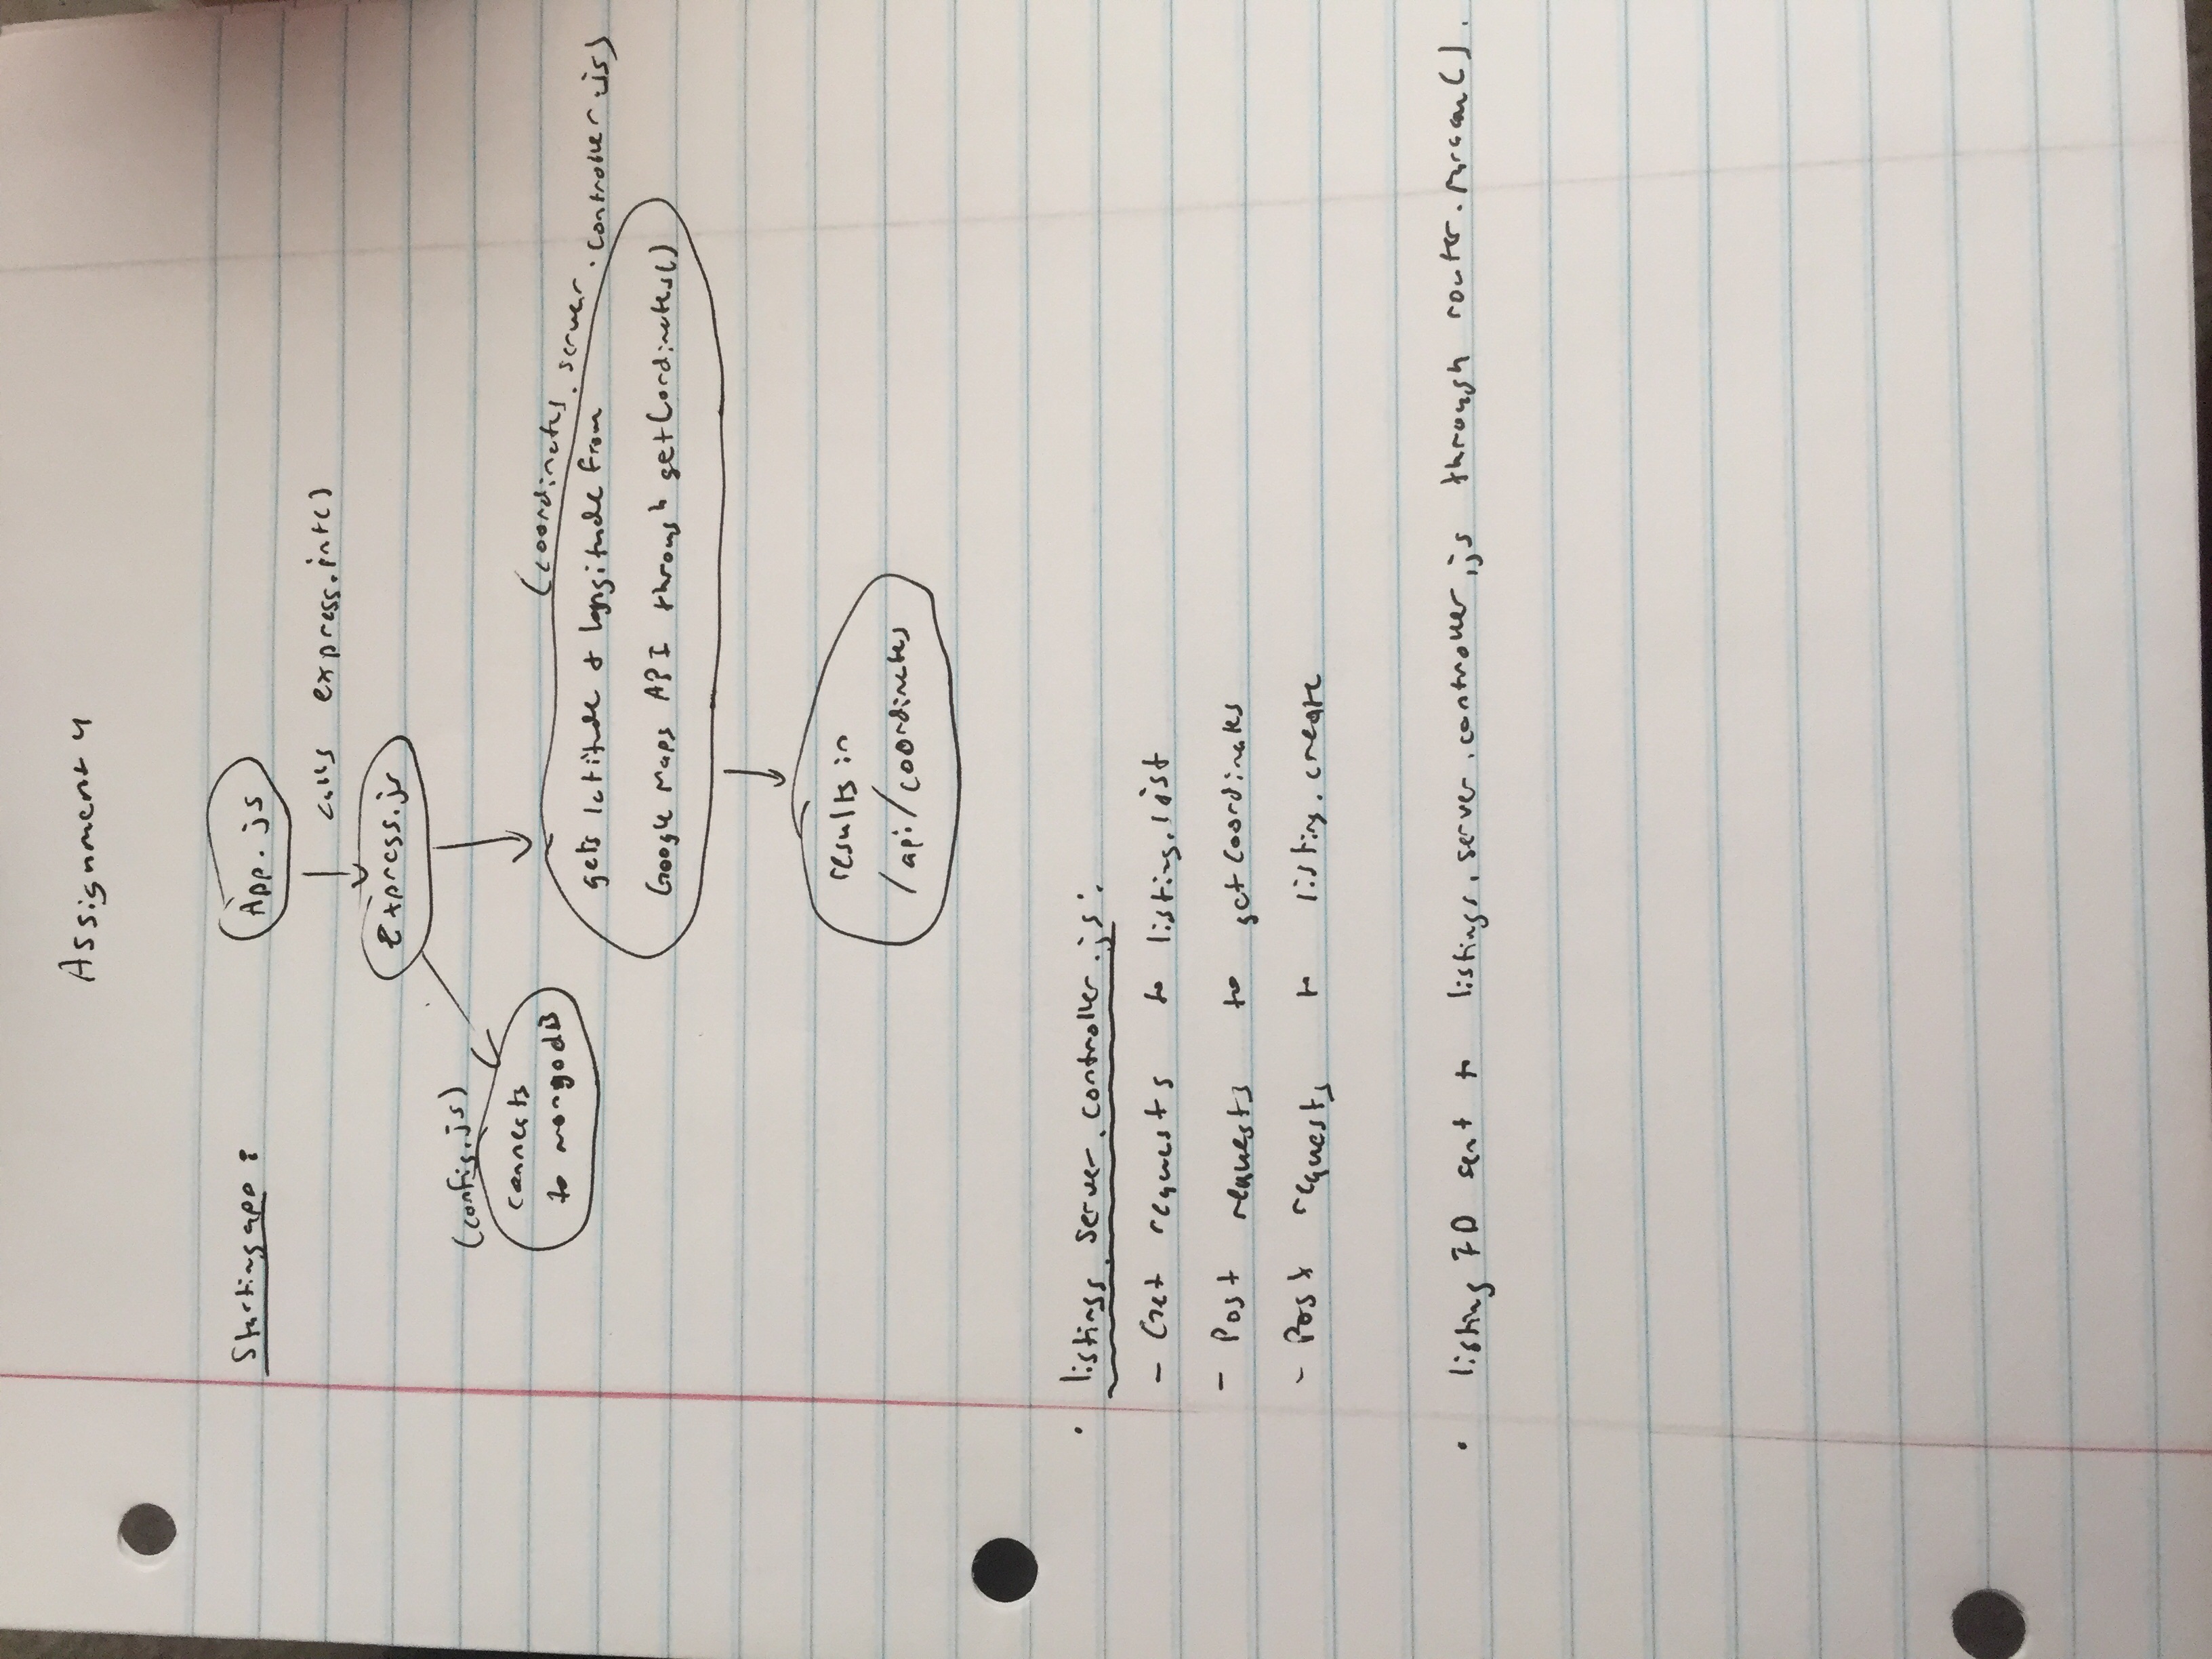 Assignment 4
Starting app:
App.js
calls express.init()
Express.js
(config.js)
connects
to mongodB
(coordinates.server.controller.js)
gets latitude & longitude from
Google Maps API through getCordinates()
results in
/api/coordinates
· listings.server.controller.js:
- Get requests to listing.list
- Post requests to getCoordinates
- Post requests to listing.create
· listing ID sent to listings.server.controller.js through router.param().